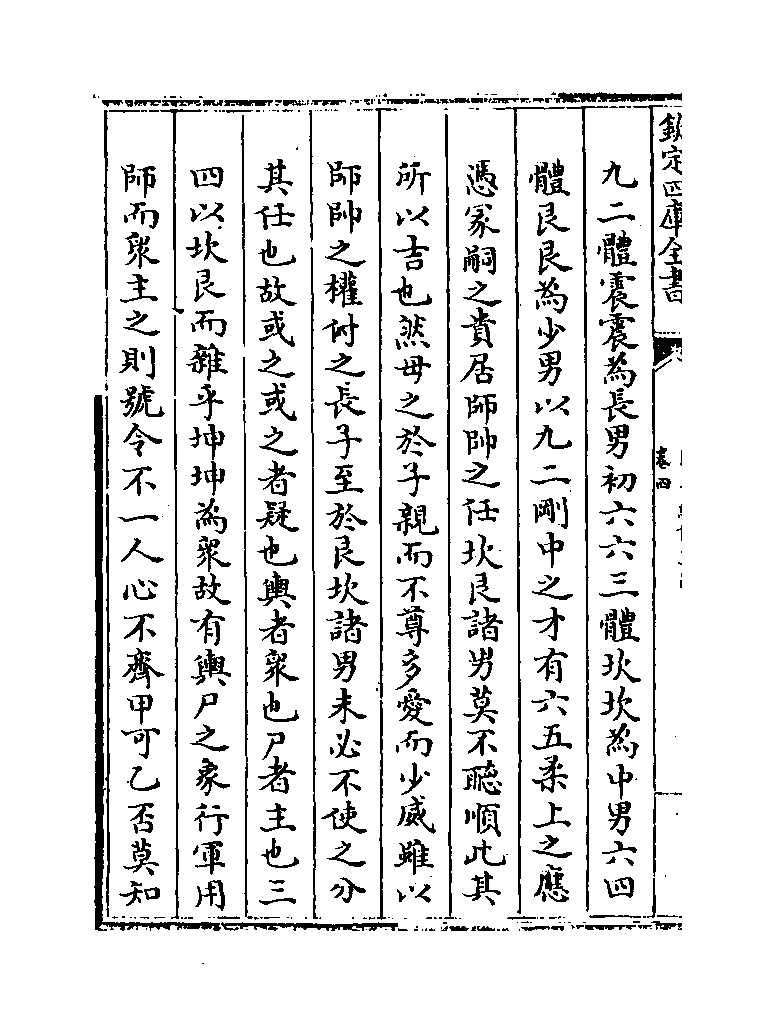 欽定四庫全書
卷四
九二體震震為長男初六六三體坎坎為中男六四
體艮艮為少男以九二剛中之才有六五柔上之應
憑冢嗣之貴居師帥之任坎艮諸男莫不聽順此其
所以吉也然母之於子親而不尊多愛而少威雖以
師帥之權付之長子至於艮坎諸男未必不使之分
其任也故或之或之者疑也輿者眾也尸者主也三
四以坎艮而雜乎坤坤為眾故有輿尸之象行軍用
師而眾主之則號令不一人心不齊甲可乙否莫知